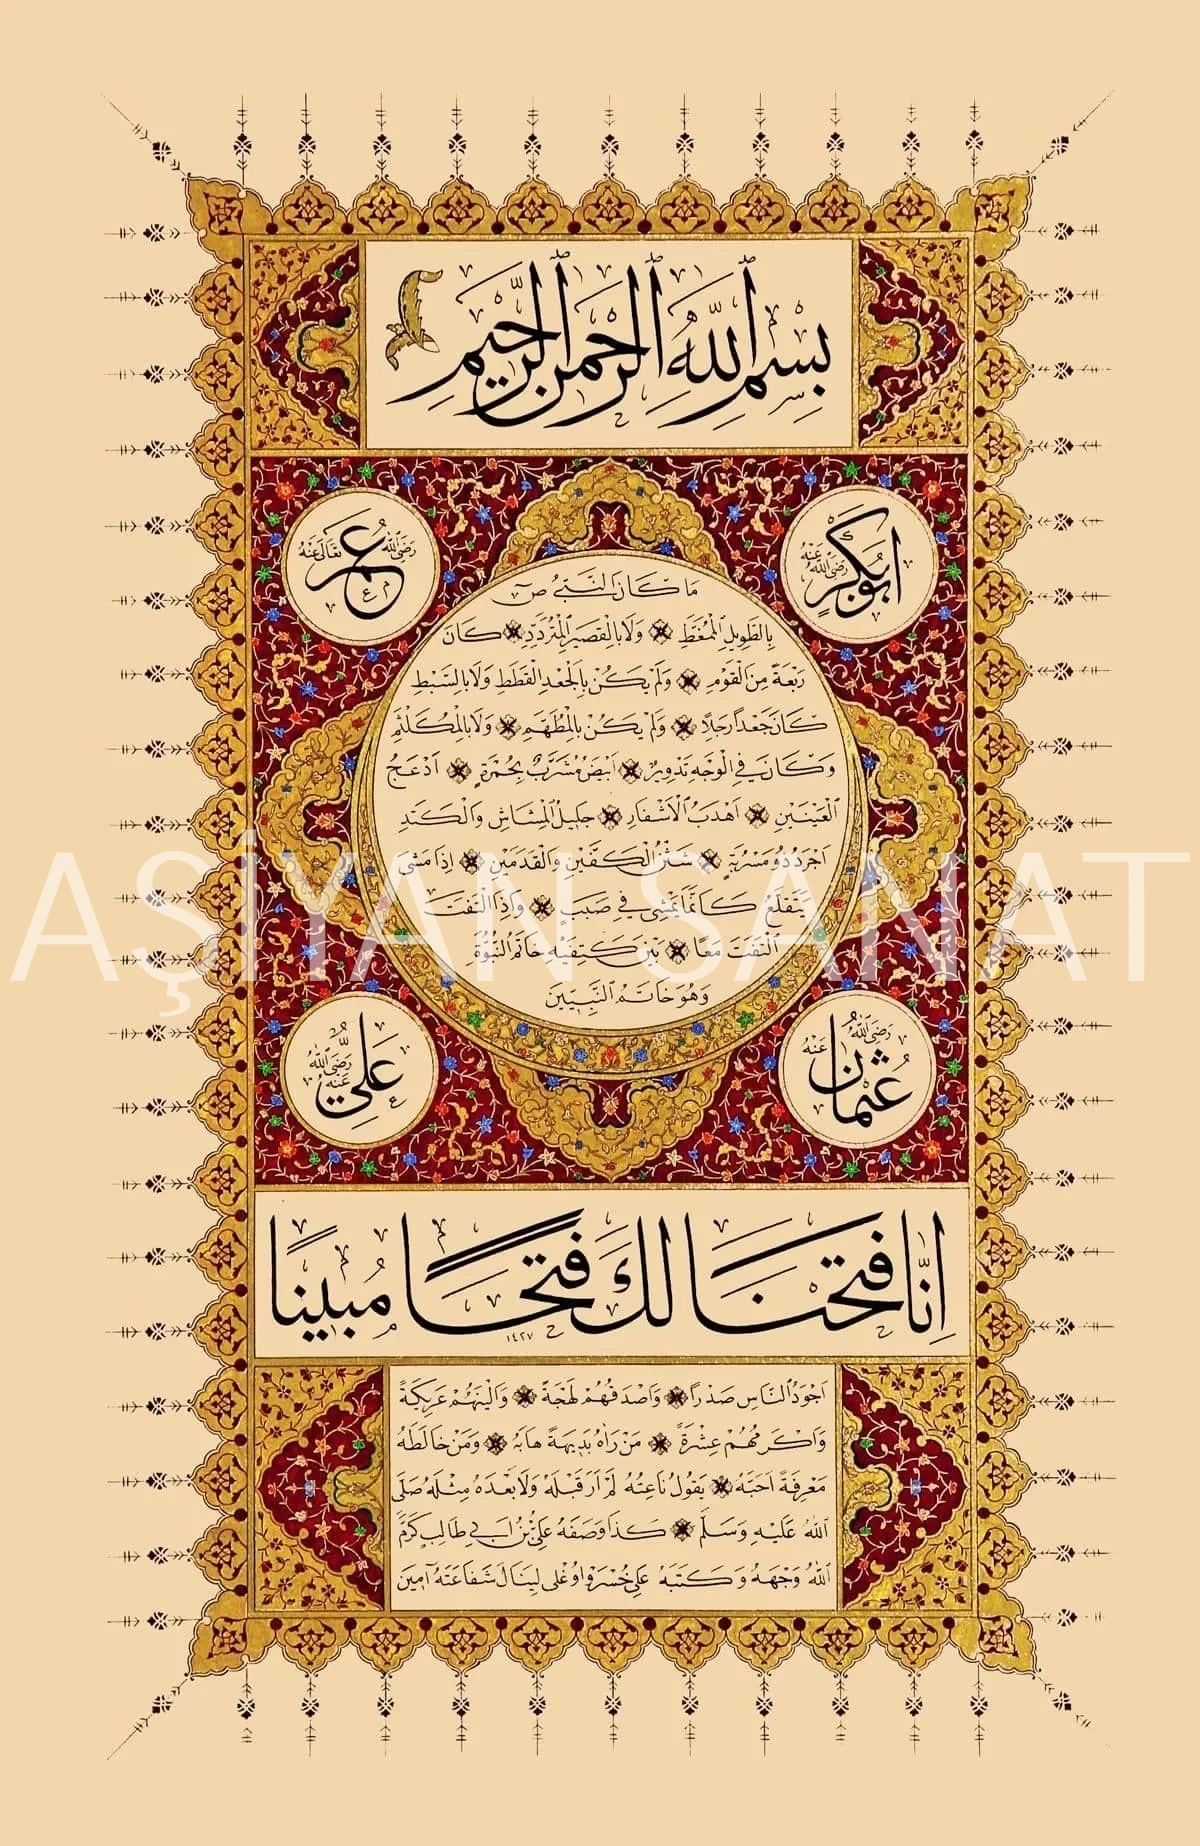 بِسْمِ اللّٰهِ الرَّحْمٰنِ الرَّحِيمِ
ابُوبَكْرٍ رَضِيَ اللّٰهُ عَنْهُ
عُمَرُ رَضِيَ اللّٰهُ تَعَالٰى عَنْهُ
مَا كَانَ النَّبِيُّ ص
بِالطَّوِيلِ الْمُمَّغَطِ وَلَا بِالْقَصِيرِ الْمُتَرَدِّدِ كَانَ
رَبْعَةً مِنَ الْقَوْمِ وَلَمْ يَكُنْ بِالْجَعْدِ الْقَطَطِ وَلَا بِالسَّبْطِ
كَانَ جَعْدًا رَجِلًا وَلَمْ يَكُنْ بِالْمُطَهَّمِ وَلَا بِالْمُكَلْثَمِ
وَكَانَ فِي الْوَجْهِ تَدْوِيرٌ اَبْيَضُ مُشْرَبٌ بِحُمْرَةٍ اَدْعَجُ
الْعَيْنَيْنِ اَهْدَبُ الْاَشْفَارِ جَلِيلُ الْمُشَاشِ وَالْكَتَدِ
اَجْرَدُ ذُو مَسْرُبَةٍ شَثْنُ الْكَفَّيْنِ وَالْقَدَمَيْنِ اِذَا مَشٰى
يَتَقَلَّعُ كَاَنَّمَا يَمْشِي فِي صَبَبٍ وَاِذَا الْتَفَتَ
الْتَفَتَ مَعًا بَيْنَ كَتِفَيْهِ خَاتَمُ النُّبُوَّةِ
وَهُوَ خَاتَمُ النَّبِيِّينَ
عُثْمَانُ رَضِيَ اللّٰهُ عَنْهُ
عَلِيٌّ رَضِيَ اللّٰهُ عَنْهُ
اِنَّا فَتَحْنَا لَكَ فَتْحًا مُبِينًا
١٤٢٧
اَجْوَدُ النَّاسِ صَدْرًا وَاَصْدَقُهُمْ لَهْجَةً وَاَلْيَنُهُمْ عَرِيكَةً
وَاَكْرَمُهُمْ عِشْرَةً مَنْ رَاٰهُ بَدِيهَةً هَابَهُ وَمَنْ خَالَطَهُ
مَعْرِفَةً اَحَبَّهُ يَقُولُ نَاعِتُهُ لَمْ اَرَ قَبْلَهُ وَلَا بَعْدَهُ مِثْلَهُ صَلَّى
اللّٰهُ عَلَيْهِ وَسَلَّمَ كَذَا وَصَفَهُ عَلِيُّ بْنُ اَبِي طَالِبٍ كَرَّمَ
اللّٰهُ وَجْهَهُ وَكَتَبَهُ عَلِي خُسْرَوْ اُوغْلِى لِيَنَالَ شَفَاعَتَهُ اٰمِينَ
AŞİYAN SANAT